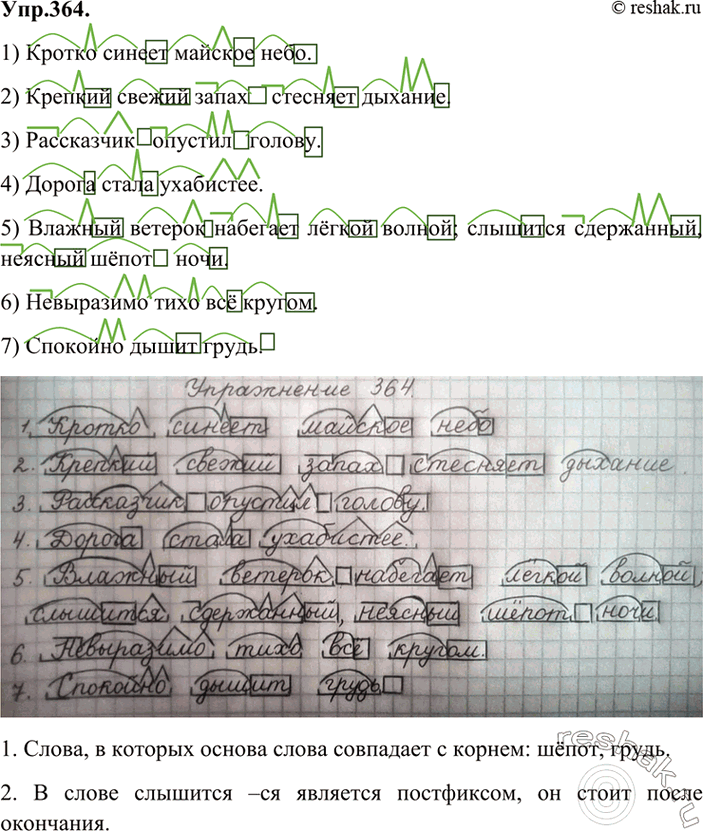 Упр.364.
© reshak.ru
1) Кротко синеет майское небо.
2) Крепкий свежий запах стесняет дыхание.
3) Рассказчик опустил голову.
4) Дорога стала ухабистее.
5) Влажный ветерок набегает лёгкой волной; слышится сдержанный,
неясный шёпот ночи.
6) Невыразимо тихо всё кругом.
7) Спокойно дышит грудь.
Упражнение 364.
1. Кротко синеет майское небо
2. Крепкий свежий запах стесняет дыхание.
3. Рассказчик опустил голову.
4. Дорога стала ухабистее.
5. Влажный ветерок набегает лёгкой волной,
слышится сдержанный, неясный шёпот ночи.
6. Невыразимо тихо всё кругом.
7. Спокойно дышит грудь
1. Слова, в которых основа слова совпадает с корнем: шёпот, грудь.
2. В слове слышится –ся является постфиксом, он стоит после
окончания.
reshak.ru